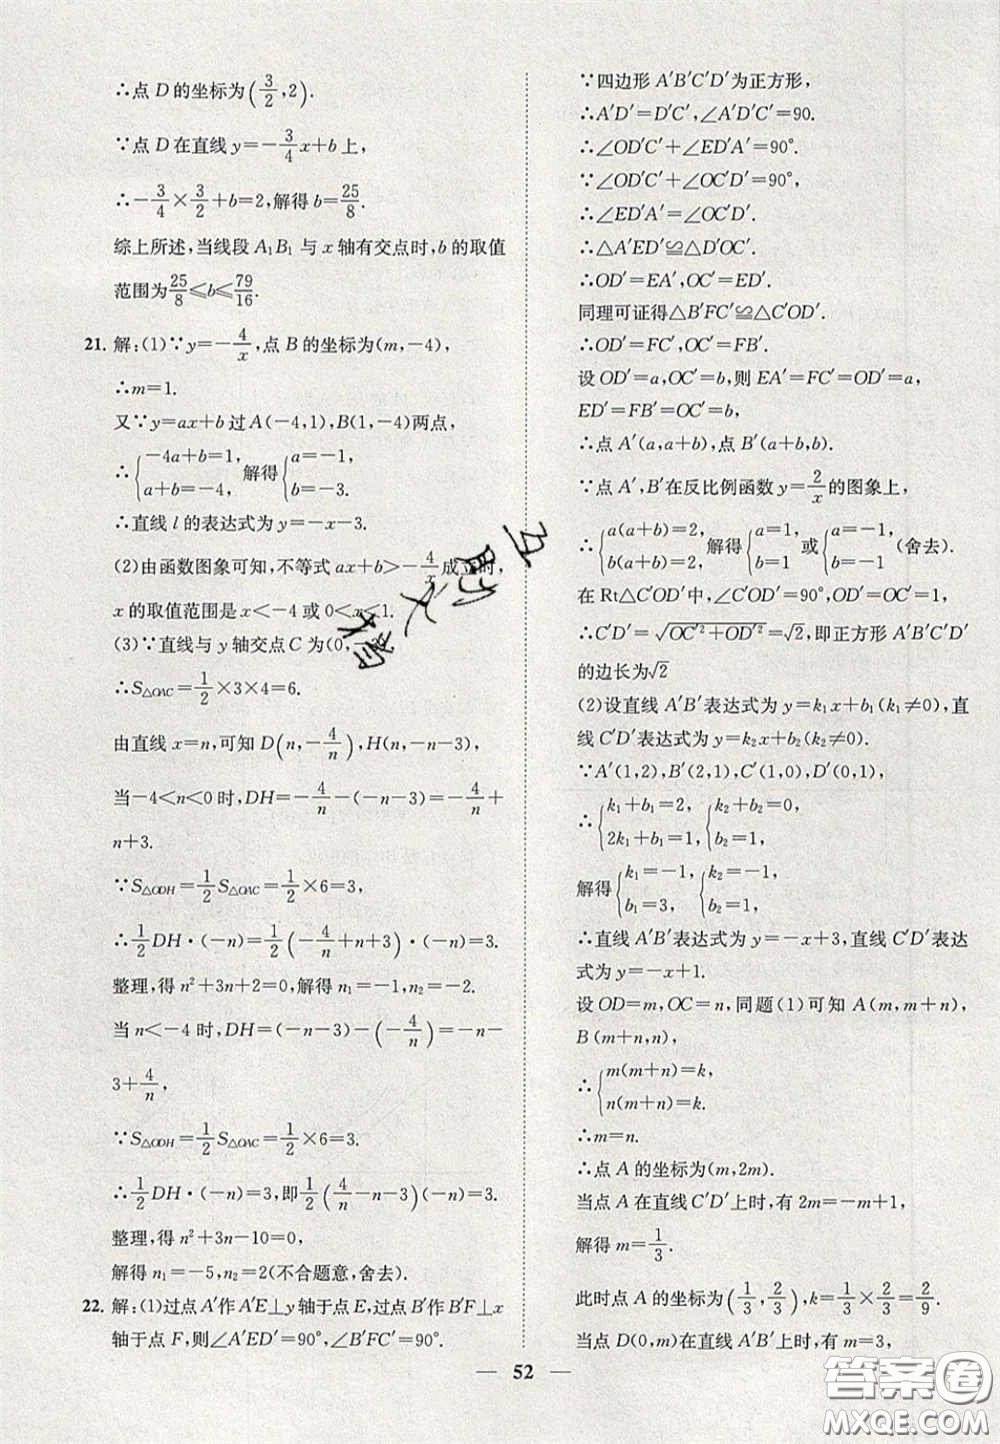 ∴点 D 的坐标为(3/2,2).
∵点 D 在直线 y=-3/4x+b 上,
∴-3/4×3/2+b=2,解得 b=25/8.
综上所述,当线段 A₁B₁ 与 x 轴有交点时,b 的取值
范围为25/8≤b≤79/16.
21. 解:(1)∵y=-4/x,点 B 的坐标为(m,-4),
∴m=1.
又∵y=ax+b 过 A(-4,1),B(1,-4)两点,
∴{-4a+b=1, a+b=-4, 解得{a=-1, b=-3.
∴直线 l 的表达式为 y=-x-3.
(2)由函数图象可知,不等式 ax+b>-4/x成立时,
x 的取值范围是 x<-4 或 0<x<1.
(3)∵直线与 y 轴交点 C 为(0,
∴S△OAC=1/2×3×4=6.
由直线 x=n,可知 D(n,-4/n),H(n,-n-3),
当-4<n<0 时,DH=-4/n-(-n-3)=-4/n+
n+3.
∵S△ODH=1/2S△OAC=1/2×6=3.
∴1/2DH·(-n)=1/2(-4/n+n+3)·(-n)=3.
整理,得 n²+3n+2=0,解得 n₁=-1,n₂=-2.
当 n<-4 时,DH=(-n-3)-(-4/n)=-n-
3+4/n,
∵S△ODH=1/2S△OAC=1/2×6=3.
∴1/2DH·(-n)=3,即1/2(4/n-n-3)(-n)=3.
整理,得 n²+3n-10=0,
解得 n₁=-5,n₂=2(不合题意,舍去).
22. 解:(1)过点 A′作 A′E⊥y 轴于点 E,过点 B′作 B′F⊥x
轴于点 F,则∠A′ED′=90°,∠B′FC′=90°.
∵四边形 A′B′C′D′为正方形,
∴A′D′=D′C′,∠A′D′C′=90.
∴∠OD′C′+∠ED′A′=90°.
∵∠OD′C′+∠OC′D′=90°,
∴∠ED′A′=∠OC′D′.
∴△A′ED′≌△D′OC′.
∴OD′=EA′,OC′=ED′.
同理可证得△B′FC′≌△C′OD′.
∴OD′=FC′,OC′=FB′.
设 OD′=a,OC′=b,则 EA′=FC′=OD′=a,
ED′=FB′=OC′=b,
∴点 A′(a,a+b),点 B′(a+b,b).
∵点 A′,B′在反比例函数 y=2/x的图象上,
∴{a(a+b)=2, b(a+b)=2, 解得{a=1, b=1 或{a=-1, b=-1 (舍去).
在 Rt△C′OD′中,∠C′OD′=90°,OD′=OC′=1,
∴C′D′=√(OC′²+OD′²)=√2,即正方形 A′B′C′D′
的边长为√2
(2)设直线 A′B′表达式为 y=k₁x+b₁(k₁≠0),直
线 C′D′表达式为 y=k₂x+b₂(k₂≠0).
∵A′(1,2),B′(2,1),C′(1,0),D′(0,1),
∴{k₁+b₁=2, 2k₁+b₁=1, {k₂+b₂=0, b₂=1,
解得{k₁=-1, b₁=3, {k₂=-1, b₂=1.
∴直线 A′B′表达式为 y=-x+3,直线 C′D′表达
式为 y=-x+1.
设 OD=m,OC=n,同题(1)可知 A(m,m+n),
B(m+n,n).
∴{m(m+n)=k, n(m+n)=k.
∴m=n.
∴点 A 的坐标为(m,2m).
当点 A 在直线 C′D′上时,有 2m=-m+1,
解得 m=1/3.
此时点 A 的坐标为(1/3,2/3),k=1/3×2/3=2/9.
当点 D(0,m)在直线 A′B′上时,有 m=3,
52
答案圈
MXQE.COM